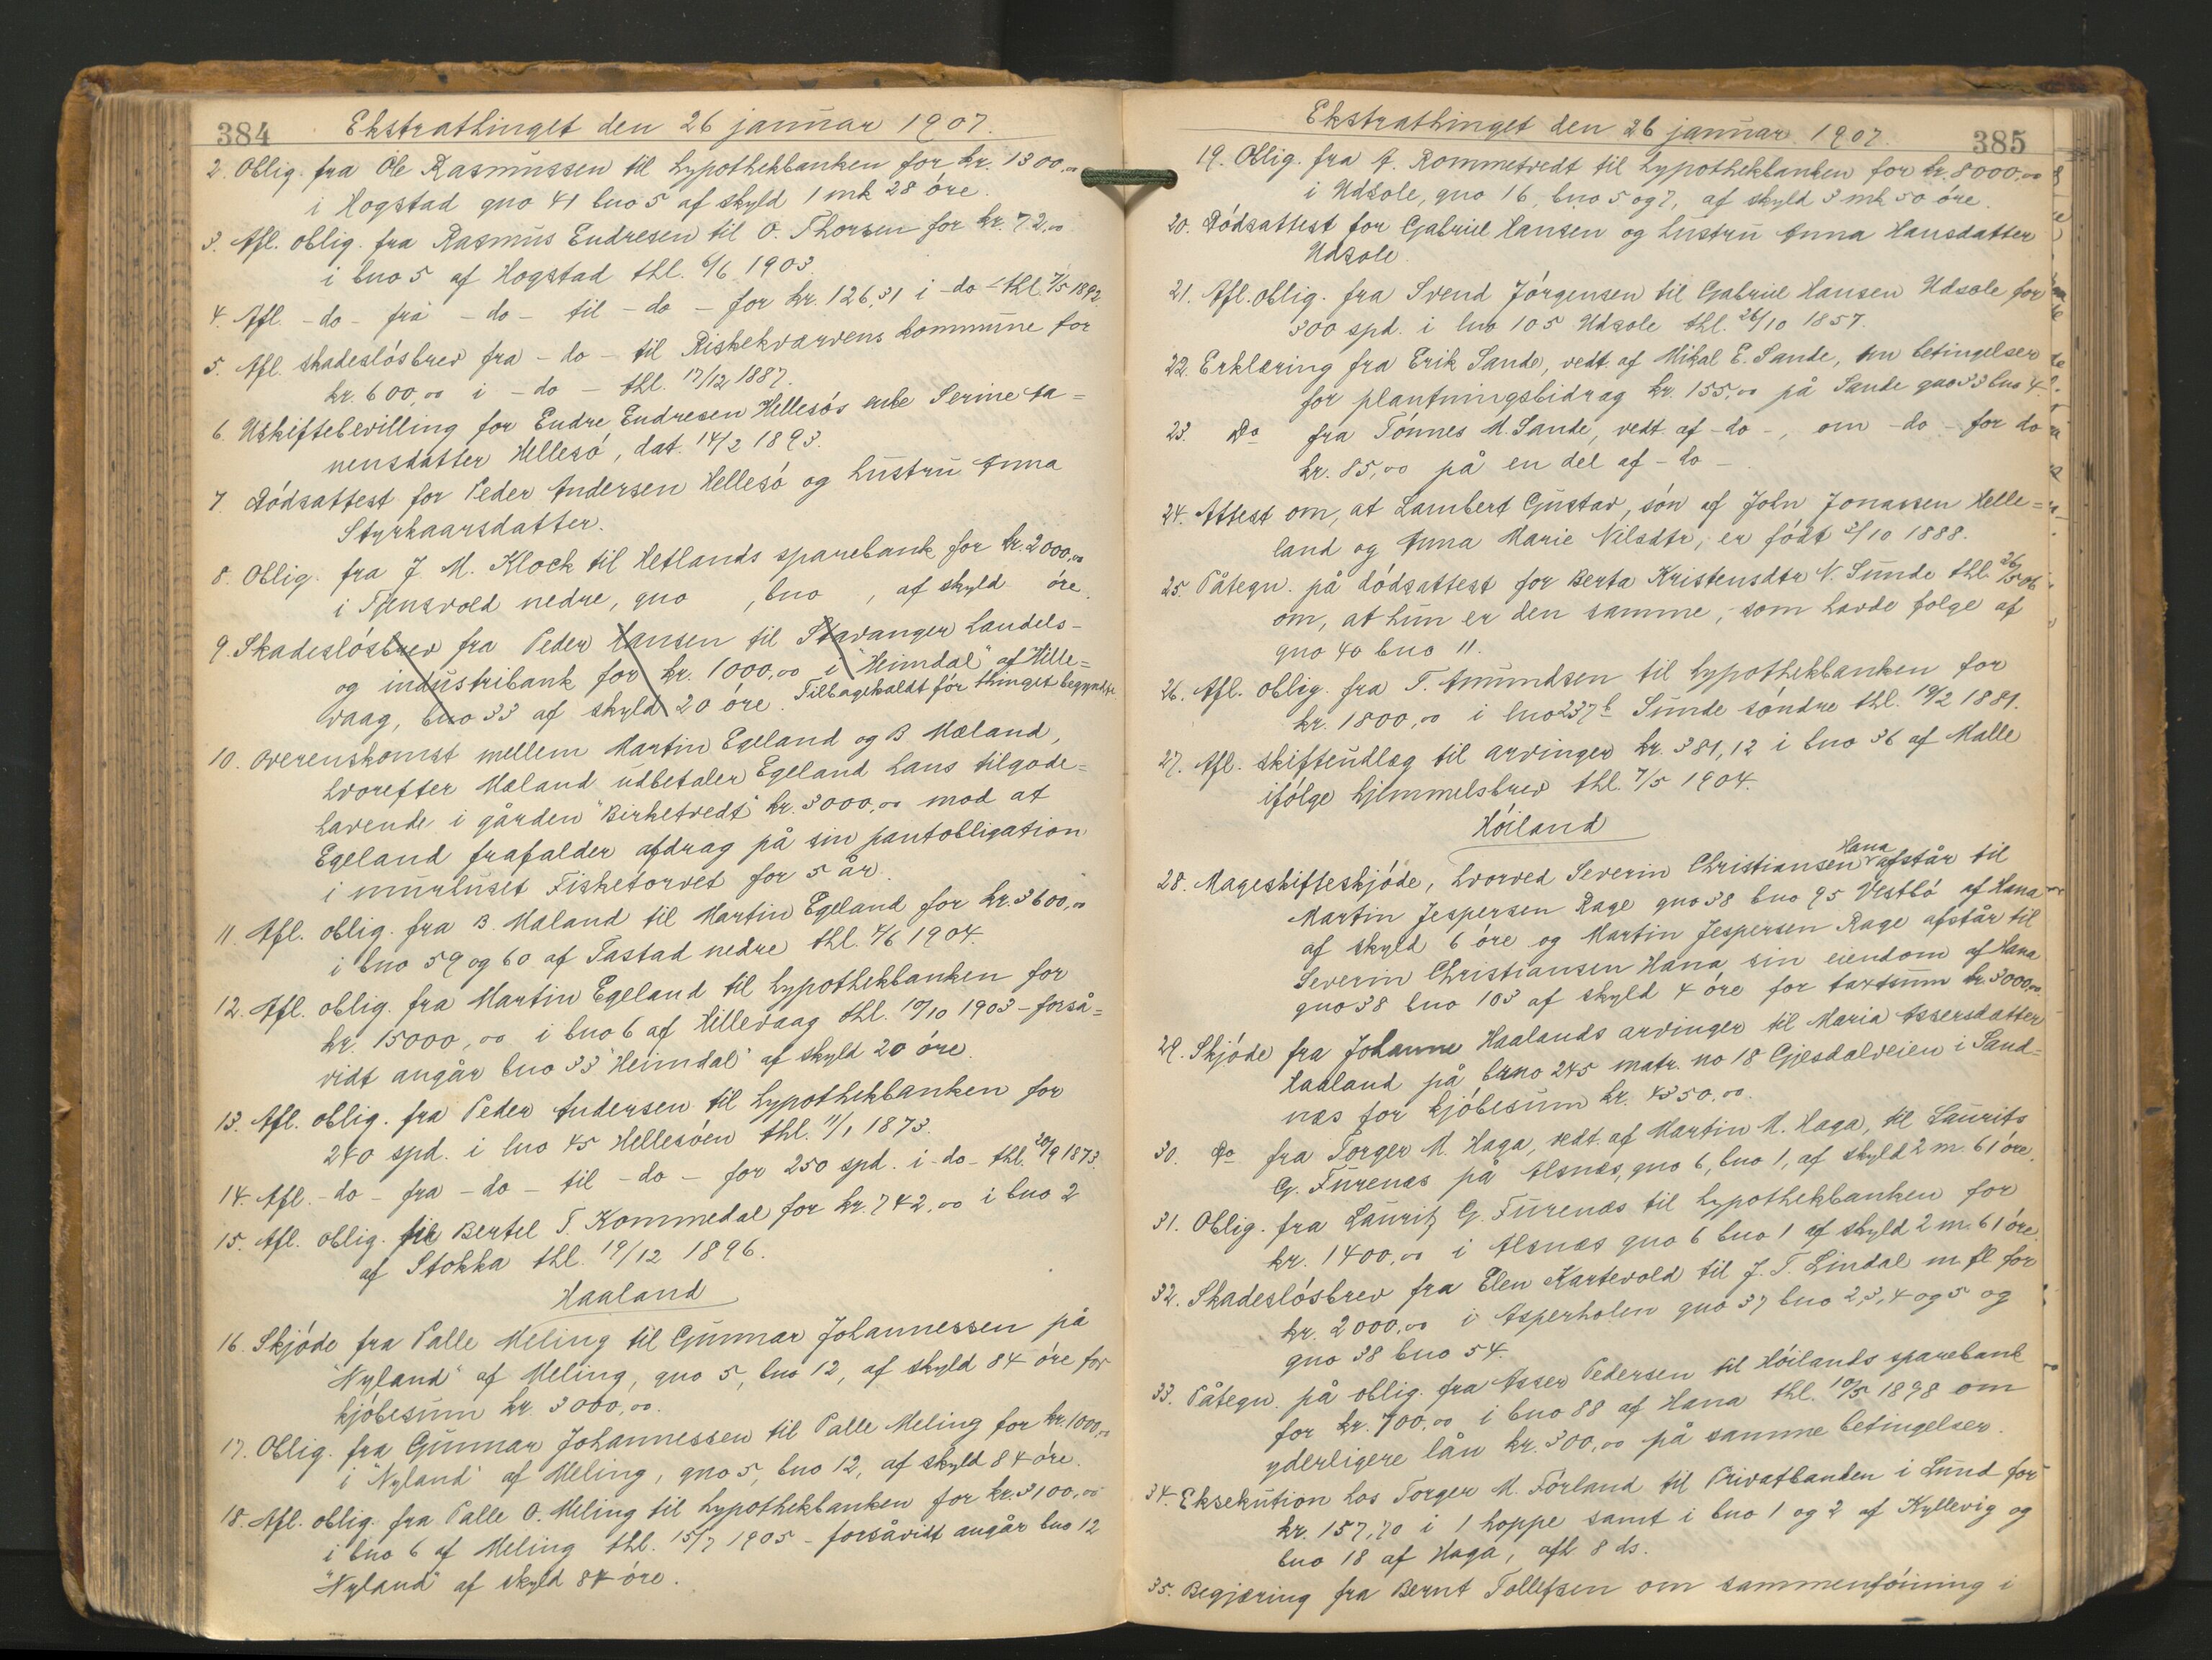 384 Ekstrathinget den 26 januar 1907.
2. Oblig. fra Ole Rasmussen til hypothekbanken for kr. 1300,00
i Hogstad gno 41 bno 5 af skyld 1 mk 28 öre.
3. Afl. oblig. fra Rasmus Endresen til O. Thorsen for kr. 72,00
i bno 5 af Hogstad thl. 6/6 1903.
4. Afl. -do- fra -do- til -do- for kr. 126,31 i -do- thl. 7/5 1892
5. Afl. skadeslösbrev fra -do- til Riskekvarvens kommune for
kr. 600,00 i -do- thl. 17/12 1887.
6. Uskiftebevilling for Endre Endresen Hellesös enke Serine Ta=
nensdatter Hellesö, dat. 14/2 1893.
7. Dödsattest for Peder Andersen Hellesö og hustru Anna
Styrkaarsdatter.
8. Oblig. fra J. M. Kloch til Hetlands sparebank for kr. 2000,00
i Tjensvold nedre, gno , bno , af skyld öre.
9. Skadeslösbrev fra Peder Hansen til Stavanger handels-
og industribank for kr. 1000,00 i "Heimdal" af Hille=
vaag, bno 33 af skyld 20 öre. Tilbagekaldt för thinget begyndte.
10. Overenskomst mellem Martin Egeland og B Mæland,
hvorefter Mæland udbetaler Egeland hans tilgode=
havende i gården "Birketvedt" kr. 3000,00 mod at
Egeland frafalder afdrag på sin pantobligation
i murhuset Fisketorvet for 5 år.
11. Afl. oblig. fra B. Mæland til Martin Egeland for kr. 3600,00
i bno 59 og 60 af Tastad nedre thl. 4/6 1904.
12. Afl. oblig. fra Martin Egeland til hypothekbanken for
kr. 15000,00 i bno 6 af Hillevaag thl. 10/10 1903 - forså=
vidt angår bno 33 "Heimdal" af skyld 20 öre.
13. Afl. oblig. fra Peder Andersen til hypothekbanken for
240 spd. i lno 45 Hellesöen thl. 11/1 1873.
14. Afl. -do- fra -do- til -do- for 250 spd. i -do- thl. 20/9 1873.
15. Afl. oblig. til Bertel T. Kommedal for kr. 742,00 i bno 2
af Stokka thl. 19/12 1896.
Haaland
16. Skjöde fra Palle Meling til Gunnar Johannessen på
"Nyland" af Meling, gno 5, bno 12, af skyld 84 öre for
kjöbesum kr. 3000,00.
17. Oblig. fra Gunnar Johannessen til Palle Meling for kr. 1000,00
i "Nyland" af Meling, gno 5, bno 12, af skyld 84 öre.
18. Afl. oblig. fra Palle O. Meling til hypothekbanken for kr. 3100,00
i bno 6 af Meling thl. 15/7 1905 - forsåvidt angår bno 12
"Nyland" af skyld 84 öre.
Ekstrathinget den 26 januar 1907. 385
19. Oblig. fra A. Rommetvedt til hypothekbanken for kr. 8000,00
i Udsole, gno 16, bno 5 og 7, af skyld 3 mk 50 öre.
20. Dödsattest for Gabriel Hansen og hustru Anna Hansdatter
Udsole.
21. Afl. oblig. fra Svend Jörgensen til Gabriel Hansen Udsole for
300 spd. i lno 105 Udsole thl. 26/10 1857.
22. Erklæring fra Erik Sande, vedt. af Mikal E. Sande, om betingelser
for plantningsbidrag kr. 155,00 på Sande gno 33 bno 4.
23. Do fra Tönnes M. Sande, vedt. af -do-, om -do- for do
kr. 85,00 på en del af -do-
24. Attest om, at Lambert Gustav, sön af John Jonassen Helle=
land og Anna Marie Nilsdtr, er födt 3/10 1888.
25. Påtegn. på dödsattest for Berta Kristensdtr N. Sunde thl. 26/5 06
om, at hun er den samme, som havde folge af
gno 40 bno 11.
26. Afl. oblig. fra T. Amundsen til hypothekbanken for
kr. 1800,00 i lno 237b Sunde söndre thl. 19/2 1881.
27. Afl. skifteudlæg til arvinger kr. 381,12 i bno 36 af Malle
ifölge hjemmelsbrev thl. 7/5 1904.
Höiland
28. Mageskifteskjöde, hvorved Severin Christiansen Hana afstår til
Martin Jespersen Rage gno 38 bno 95 Vestbö af Hana
af skyld 6 öre og Martin Jespersen Rage afstår til
Severin Christiansen Hana sin eiendom af Hana
gno 38 bno 103 af skyld 4 öre for taxtsum kr. 3000,00.
29. Skjöde fra Johanne Haalands arvinger til Maria Assersdatter
Haaland på brno 245 matr. no 18 Gjesdalveien i Sand=
næs for kjöbesum kr. 4350,00.
30. Do fra Torger M. Haga, vedt. af Martin M. Haga, til Laurits
G. Furenæs på Alsnæs, gno 6, bno 1, af skyld 2 m. 61 öre.
31. Oblig. fra Lauritz G. Furenæs til hypothekbanken for
kr. 1400,00 i Alsnæs gno 6 bno 1 af skyld 2 m. 61 öre.
32. Skadeslösbrev fra Elen Kartevold til J. T. Lindal m fl for
kr. 2000,00 i Asperholen gno 37 bno 2, 3, 4 og 5 og
gno 38 bno 54.
33. Påtegn. på oblig. fra Asser Pedersen til Höilands sparebank
for kr. 700,00 i bno 88 af Hana thl. 10/5 1898 om
yderligere lån kr. 300,00 på samme betingelser.
34. Eksekution hos Torger M. Förland til Privatbanken i Lund for
kr. 157,70 i 1 hoppe samt i bno 1 og 2 af Kyllevig og
bno 18 af Haga, afh. 8 ds.
35. Begjæring fra Bernt Tollefsen om sammenföining i